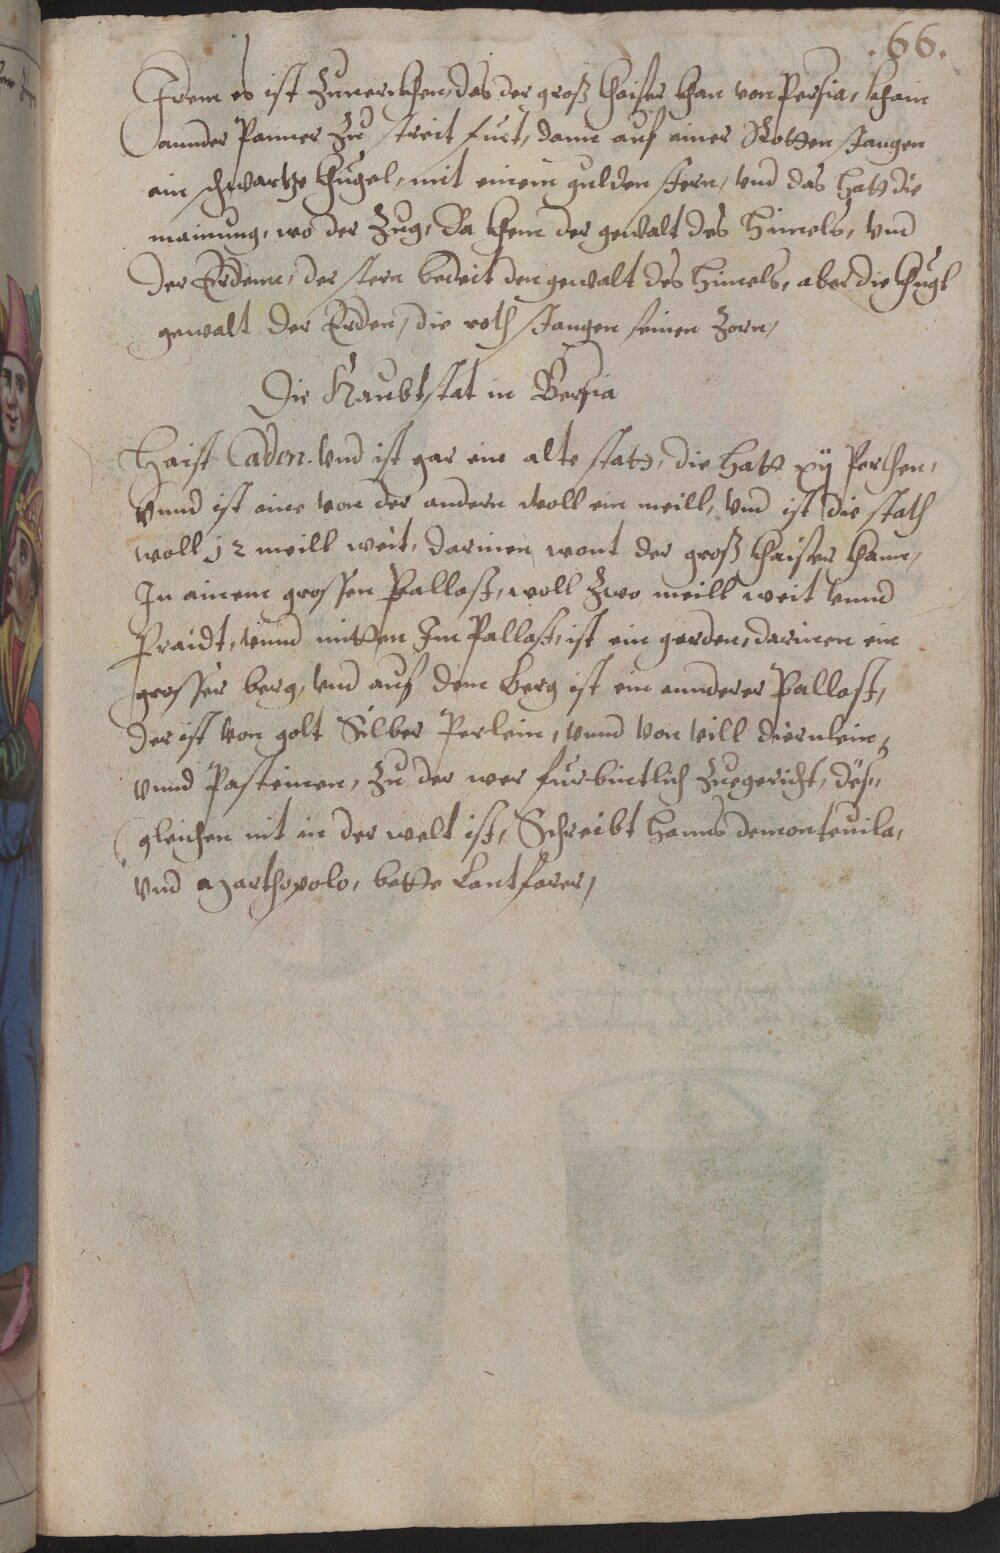 .66.
Item es ist Zumerckhen, das der groß Khaiser Khan von Persia, Khain
annder Panner Zu streit furt, dann auf ainer Rotten stangen
ein schwartze Khugel, mit einem gulden stern, vnd das hatt die
mainung, wo der Zug, Da khem der gewalt des Himels, vnd
der Erdenn, der stern bedeit den gewalt des himels, aber die Khugl
gewalt der Erden, die roth stangen seinen Zorn,
Die Haubtstat in Persia
Haist Cadon. vnd ist gar ein alte statt, die hatt xij Perkhen,
vnnd ist eine von der andern woll ein meill, vnd ist die stath
woll 12 meill weit, darinen wont der groß Khaiser Khann,
In ainem grossen Pallast, woll Zwo meill weit vnnd
Praidt, vnnd mitten Im Pallast, ist ein garden, darinen ein
grosser berg, vnd auf dem berg ist ein annderer Pallast,
der ist von golt Silber Perlein, vnnd von vill diernlein,
vnnd Pasteinen, Zu der wer furbintlich Zuegericht, deß,,
gleichen nit in der welt ist, Schreibt Hanns demontevila,
vnd Marthopolo, bette Lantfarer,